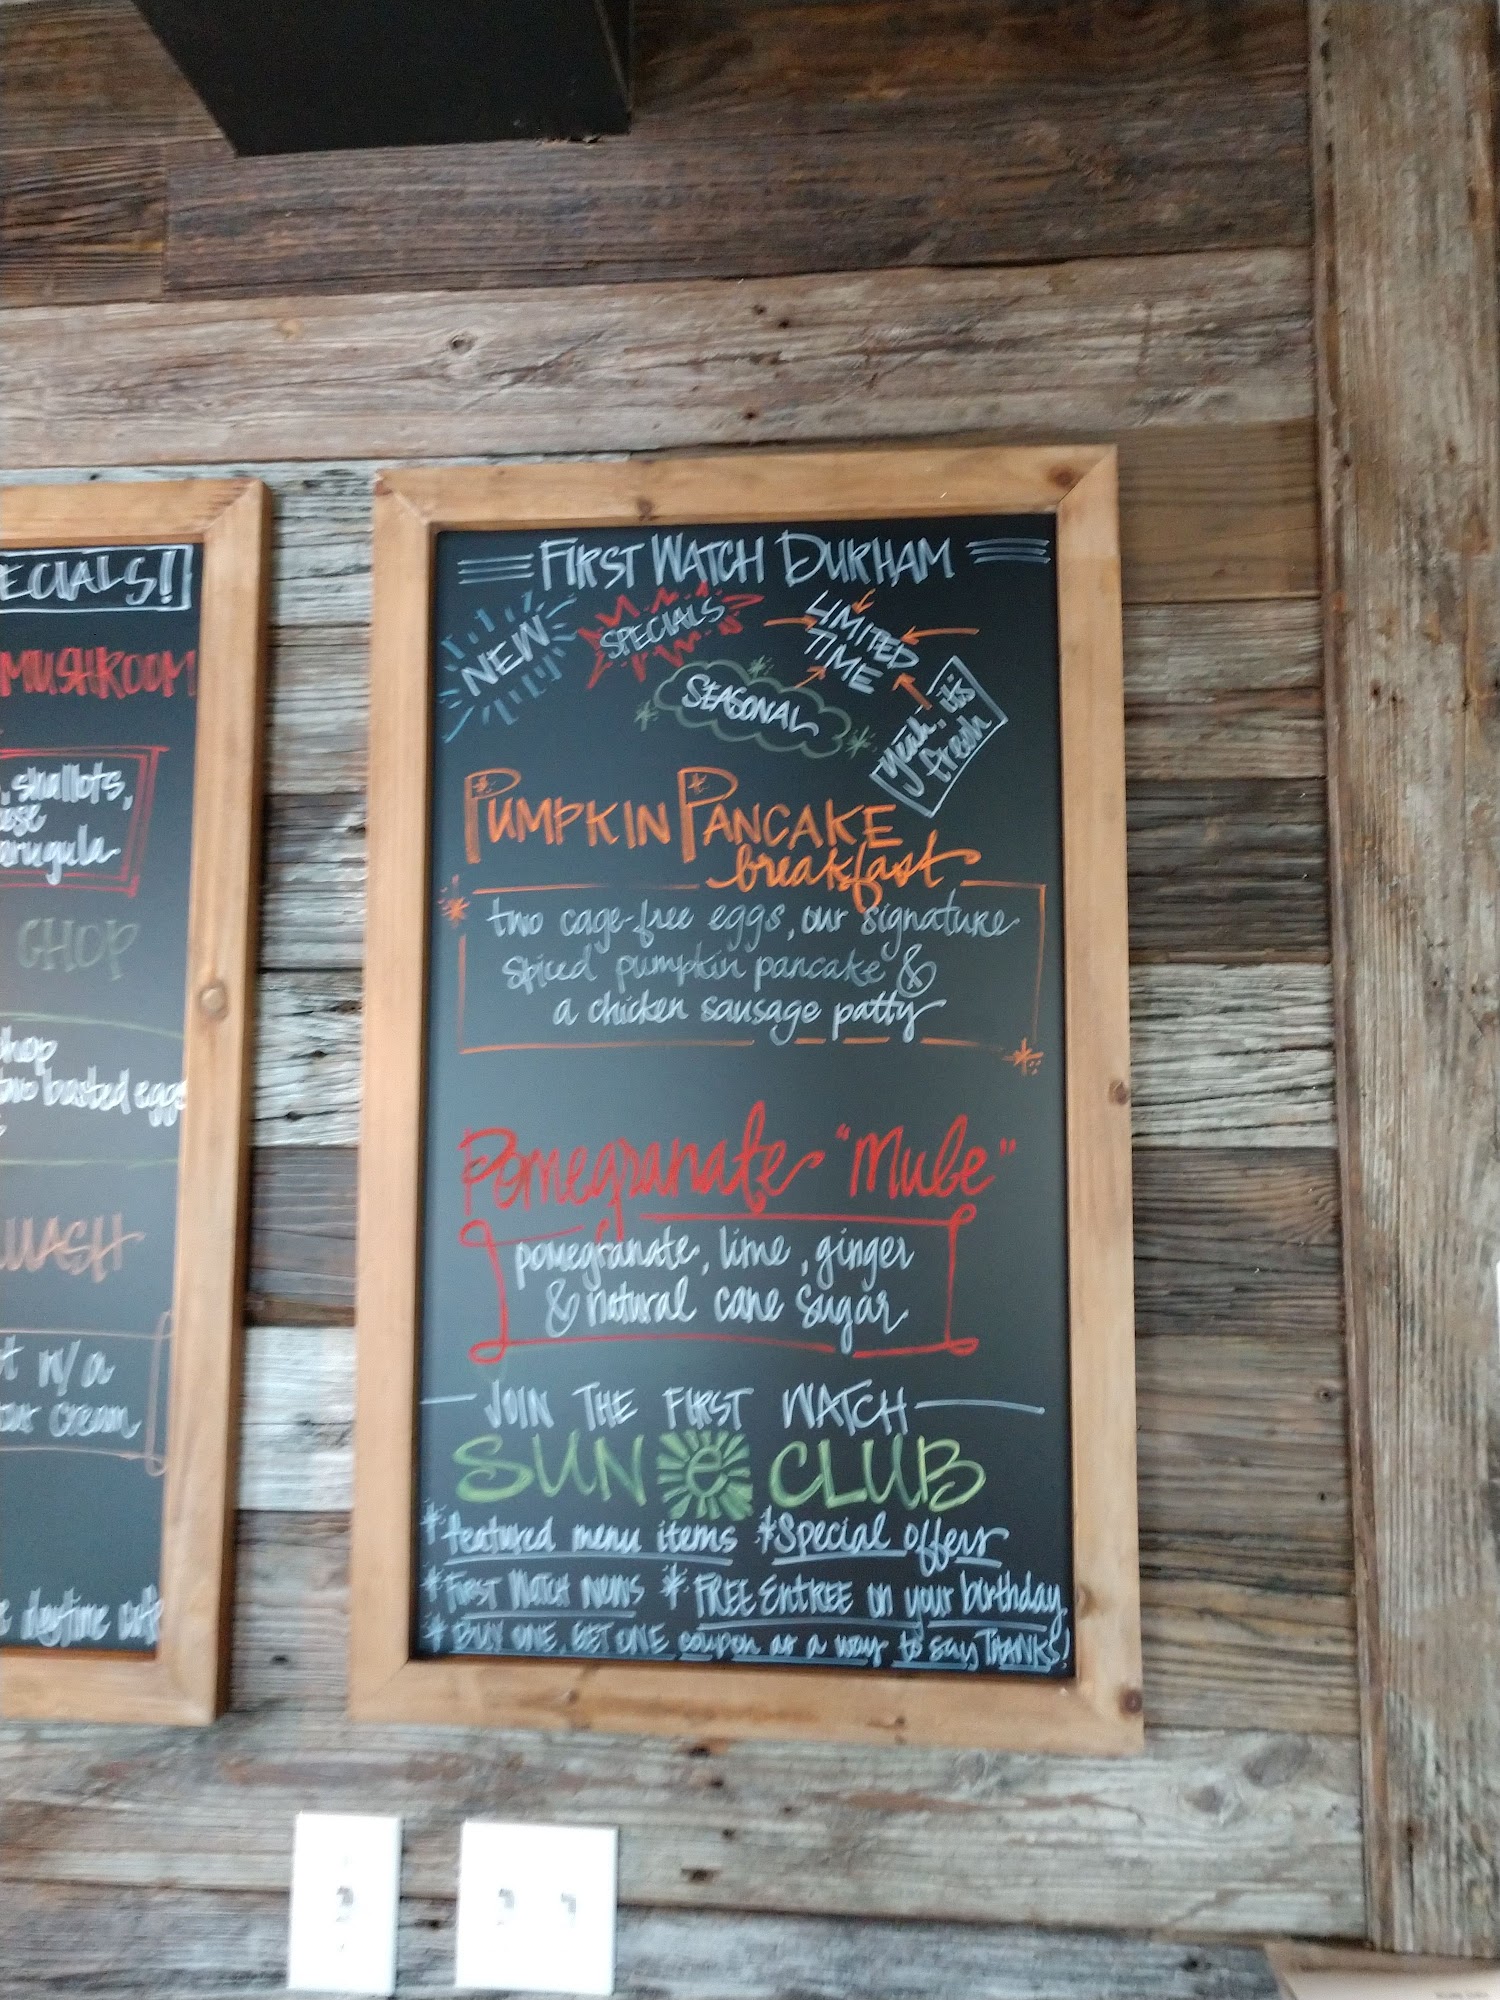 ECIALS!
MUSHROOM
, shallots,
arugula
CHOP
chop
two basted eggs
UASH
w/a
cream
daytime café
FIRST WATCH DURHAM
NEW
SPECIALS
LIMITED
TIME
SEASONAL
yeah, it's
fresh
PUMPKIN PANCAKE
breakfast
two cage-free eggs, our signature
spiced pumpkin pancake &
a chicken sausage patty
Pomegranate "Mule"
pomegranate, lime, ginger
& natural cane sugar
JOIN THE FIRST WATCH
SUN e CLUB
* featured menu items * Special offers
* FIRST WATCH NEWS * FREE ENTREE on your birthday
* BUY ONE, GET ONE coupon as a way to say THANKS!